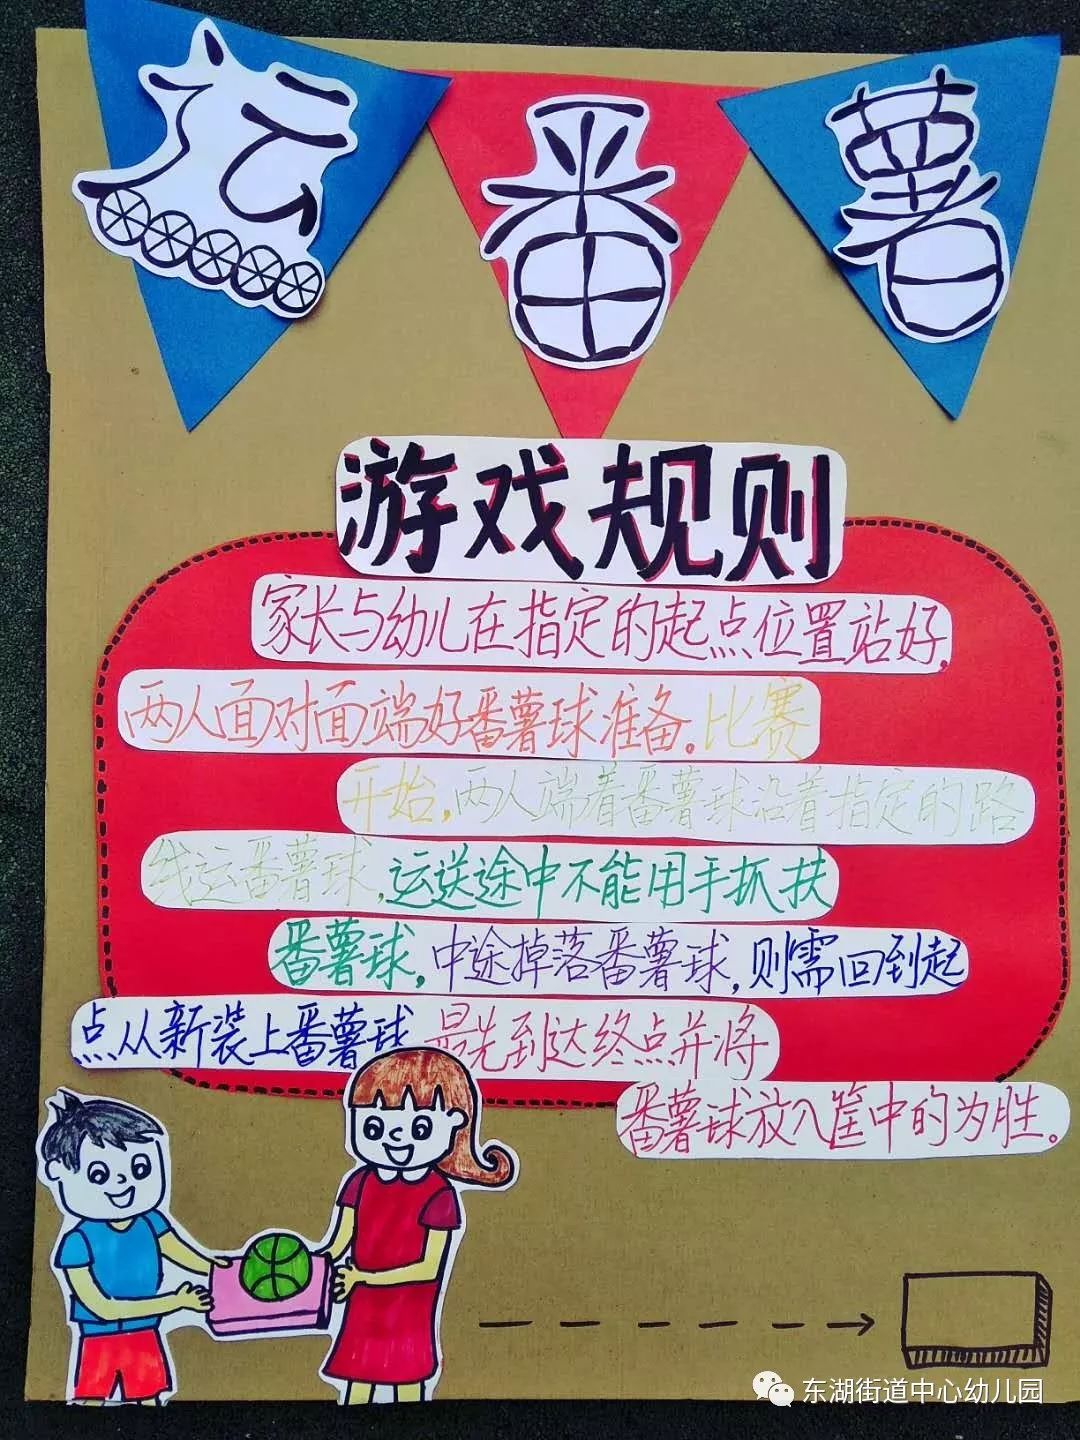 运番薯
游戏规则
家长与幼儿在指定的起点位置站好,
两人面对面端好番薯球准备。比赛
开始,两人端着番薯球沿着指定的路
线运番薯球,运送途中不能用手抓扶
番薯球,中途掉落番薯球,则需回到起
点从新装上番薯球 最先到达终点并将
番薯球放入筐中的为胜。
东湖街道中心幼儿园